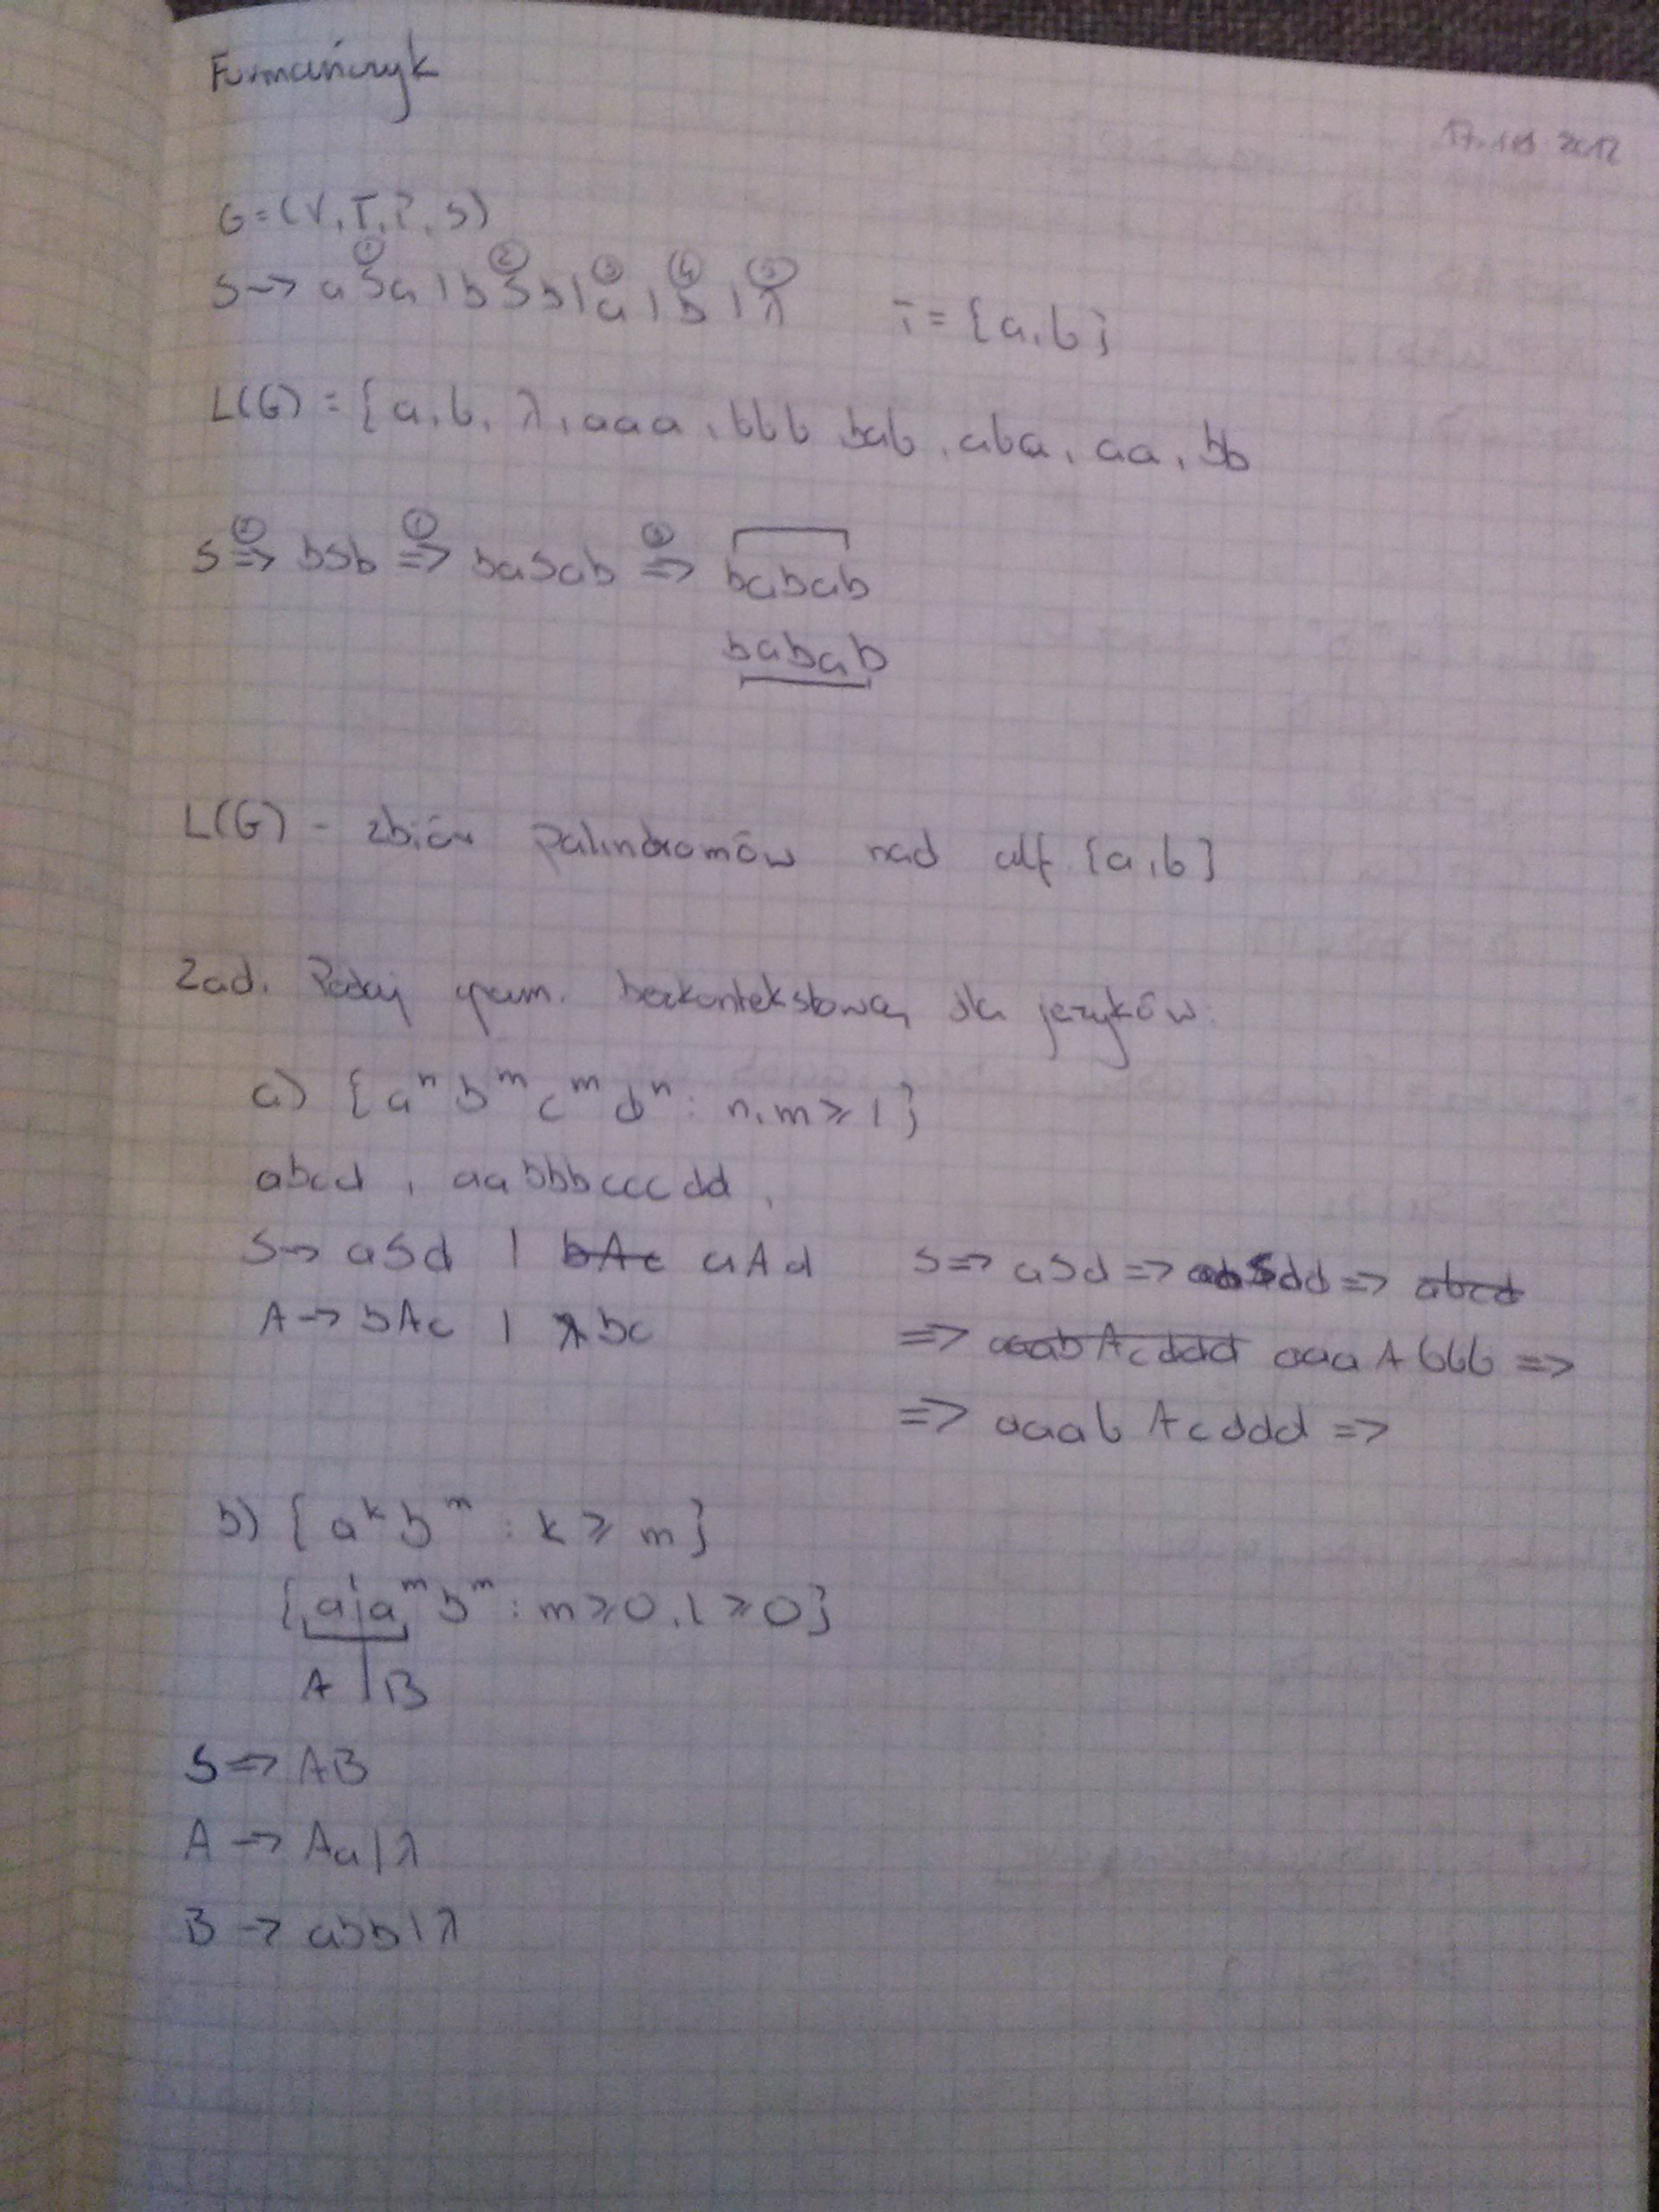 Furmańczyk
17.10 2012
G = (V, T, P, S)
① ② ③ ④ ⑤
S → aSa | bSb | a | b | λ T = {a, b}
L(G) = { a, b, λ, aaa, bbb bab, aba, aa, bb
② ① ④
S ⇒ bSb ⇒ baSab ⇒ babab
babab
L(G) - zbiór palindromów nad alf {a, b}
Zad. Podaj gram. bezkontekstową dla języków:
a) { aⁿ bᵐ cᵐ dⁿ : n, m ⩾ 1 }
abcd , aabbbcccdd ,
S → aSd | bAc aAd S ⇒ aSd ⇒ aaSdd ⇒ abcd
A → bAc | λ bc ⇒ aaabAcddd aaaAbbb ⇒
⇒ aaabAcddd ⇒
b) { aᵏ bᵐ : k ⩾ m }
{ aˡ aᵐ bᵐ : m ⩾ 0, l ⩾ 0 }
A | B
S ⇒ AB
A → Aa | λ
B → aBb | λ